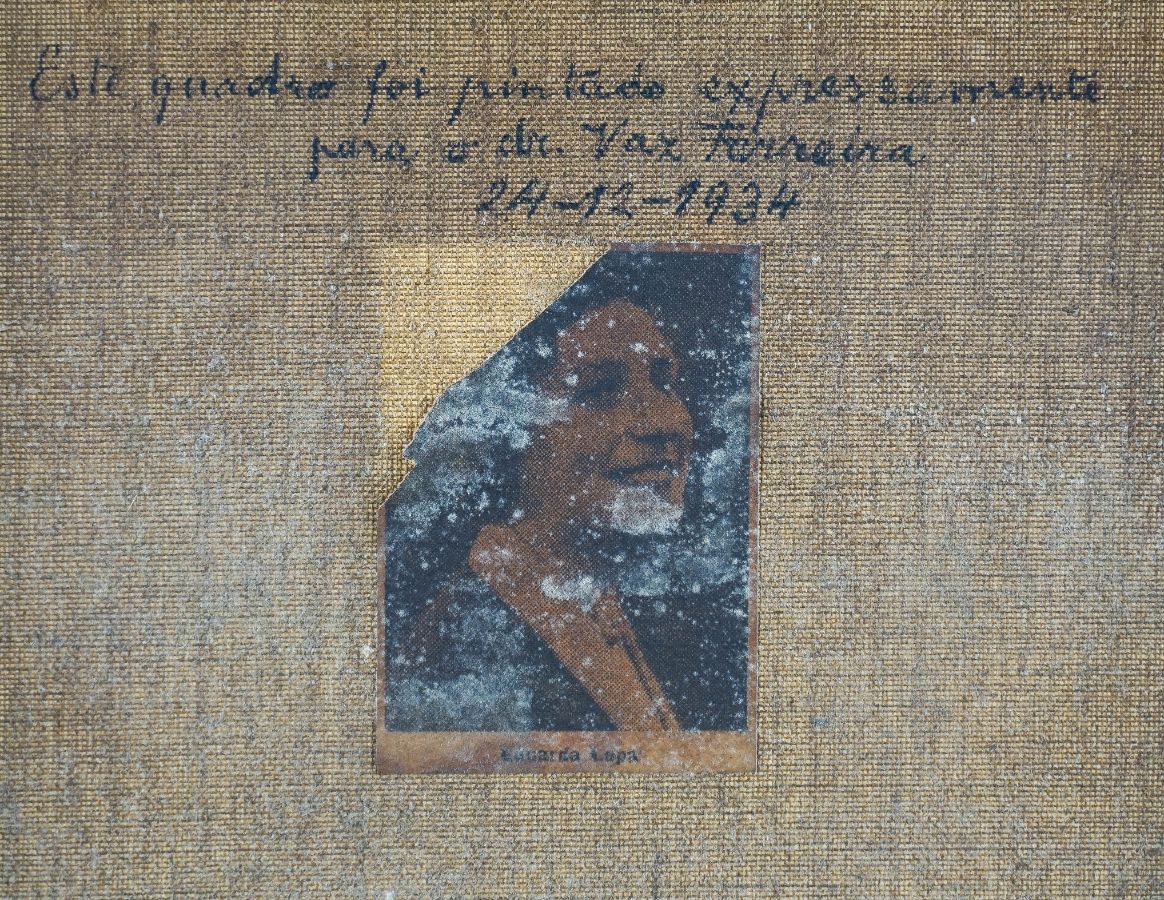 Este quadro foi pintado expressamente
para o dr. Vaz Ferreira
24-12-1934
Eduarda Lapa